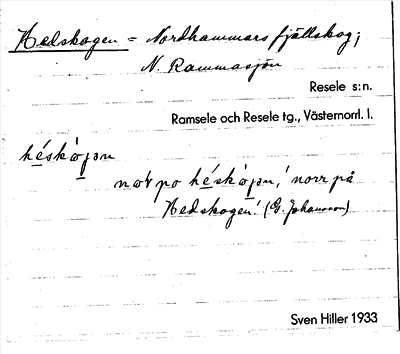 Hedskogen = Nordhammars fjällskog;
N. Rammasjön
Resele s:n.
Ramsele och Resele tg., Västernorrl. l.
héskòɡən
nor po héskòɡən, 'norr på
Hedskogen'. (G. Johansson)
Sven Hiller 1933